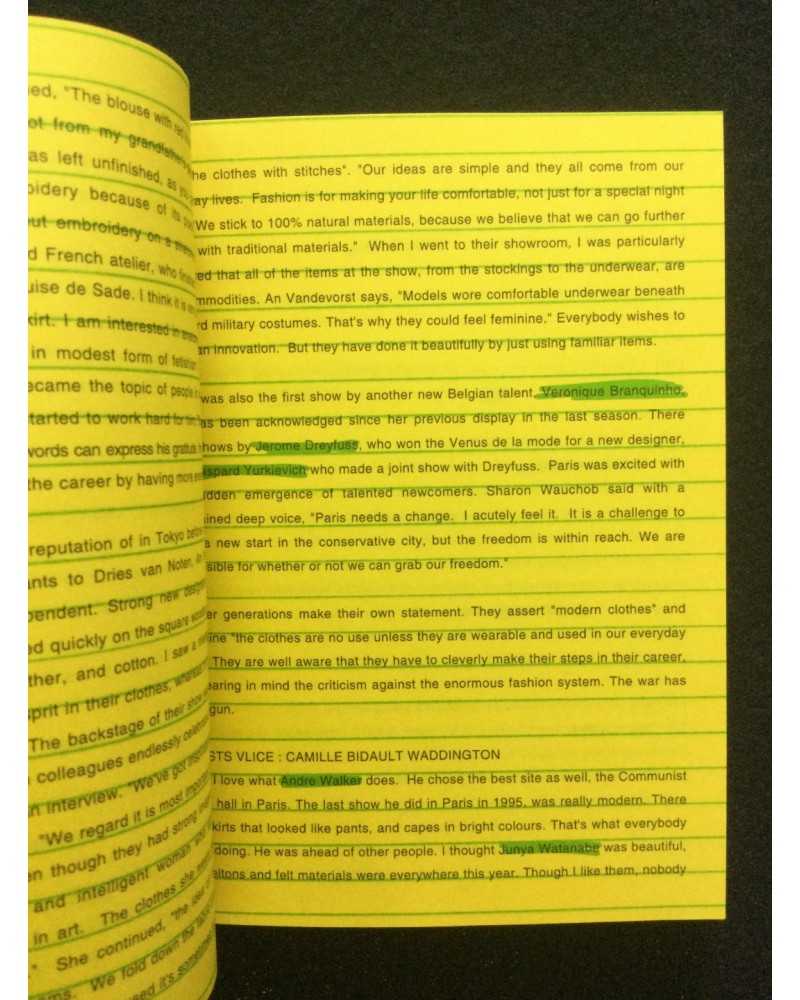 ed, "The blouse with
ot from my grandfather's
as left unfinished, as
oidery because of its
out embroidery on a
d French atelier, who
uise de Sade. I think it is
kirt. I am interested in
in modest form of fetishism
ecame the topic of people
started to work hard for
words can express his gratitude
the career by having more
reputation of in Tokyo before
ants to Dries van Noten,
pendent. Strong new
ed quickly on the square
ther, and cotton. I saw a
sprit in their clothes, whereas
The backstage of their show
colleagues endlessly
n interview. "We've got
"We regard it is most important
en though they had strong
and intelligent woman
in art. The clothes she
." She continued, "the idea of
ms. We fold down the
used it's sometimes
he clothes with stitches". "Our ideas are simple and they all come from our
ay lives. Fashion is for making your life comfortable, not just for a special night
We stick to 100% natural materials, because we believe that we can go further
with traditional materials." When I went to their showroom, I was particularly
ed that all of the items at the show, from the stockings to the underwear, are
mmodities. An Vandevorst says, "Models wore comfortable underwear beneath
rd military costumes. That's why they could feel feminine." Everybody wishes to
an innovation. But they have done it beautifully by just using familiar items.
was also the first show by another new Belgian talent, Veronique Branquinho,
as been acknowledged since her previous display in the last season. There
hows by Jerome Dreyfuss, who won the Venus de la mode for a new designer,
aspard Yurkievich who made a joint show with Dreyfuss. Paris was excited with
udden emergence of talented newcomers. Sharon Wauchob said with a
ined deep voice, "Paris needs a change. I acutely feel it. It is a challenge to
a new start in the conservative city, but the freedom is within reach. We are
sible for whether or not we can grab our freedom."
er generations make their own statement. They assert "modern clothes" and
ine "the clothes are no use unless they are wearable and used in our everyday
They are well aware that they have to cleverly make their steps in their career,
earing in mind the criticism against the enormous fashion system. The war has
gun.
STS VLICE : CAMILLE BIDAULT WADDINGTON
I love what Andre Walker does. He chose the best site as well, the Communist
hall in Paris. The last show he did in Paris in 1995, was really modern. There
kirts that looked like pants, and capes in bright colours. That's what everybody
doing. He was ahead of other people. I thought Junya Watanabe was beautiful,
eltons and felt materials were everywhere this year. Though I like them, nobody